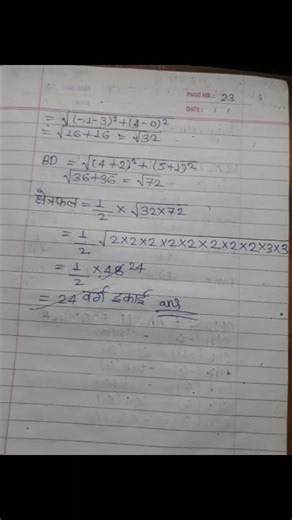 PAGE NO.: 23
DATE: / /
= √(-1-3)² + (4-0)²
= √16+16 = √32
BD = √(4+2)² + (5+1)²
√36+36 = √72
क्षेत्रफल = 1/2 × √32×72
= 1/2 √2×2×2×2×2×2×2×2×3×3
= 1/2 × 48 24
= 24 वर्ग इकाई ans